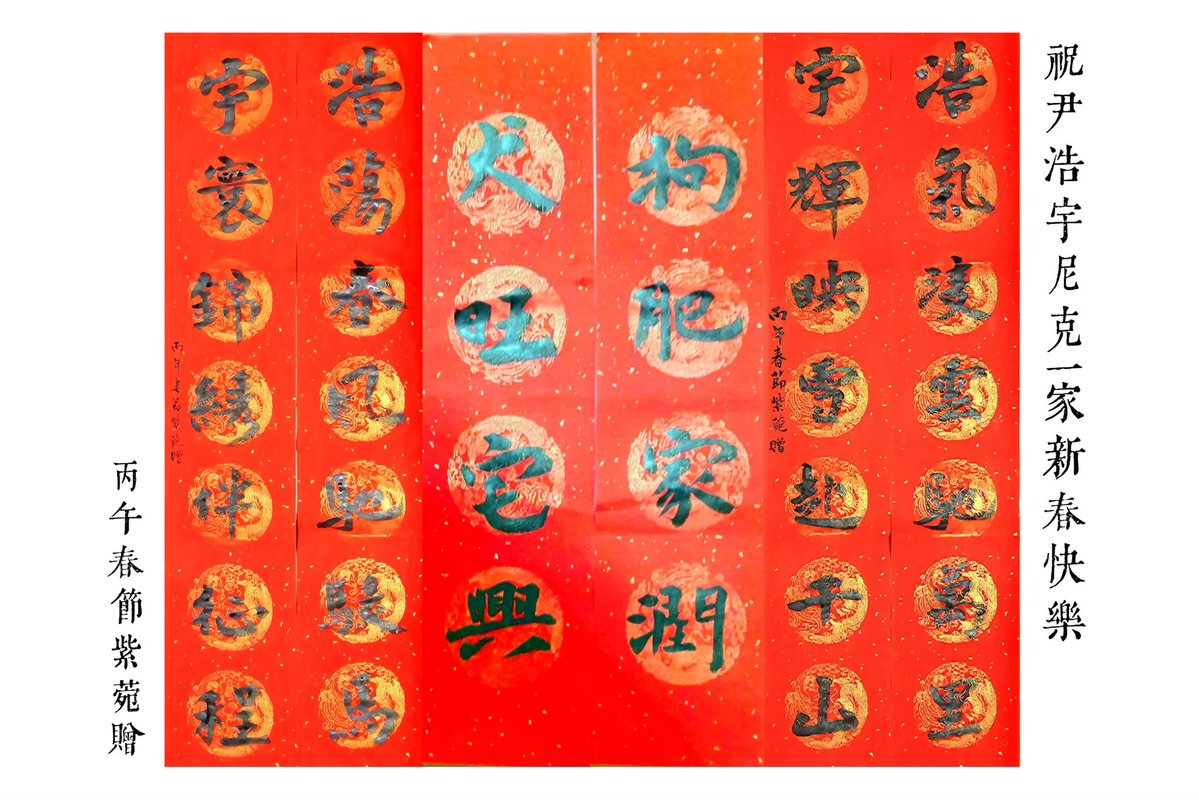 祝尹浩宇尼克一家新春快樂
浩氣凌雲馳萬里
宇輝映雪越千山
丙午春節紫菀贈
狗肥家潤
犬旺宅興
浩蕩春風馳駿馬
宇寰錦繡伴征程
丙午春節紫菀贈
丙午春節紫菀贈